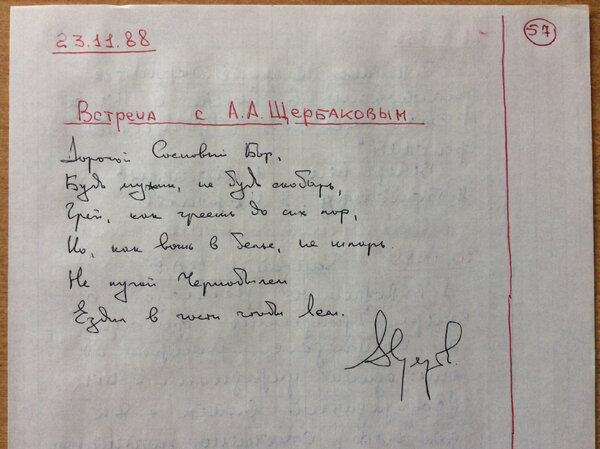 23.11.88
57
Встреча с А.А.Щербаковым.
Дорогой Сосновый Бор,
Будь мужик, не будь скобарь,
Грей, как греешь до сих пор,
Но, как вошь в белье, не шпарь.
Не пугай Чернобылем
Ездил в гости чтобы